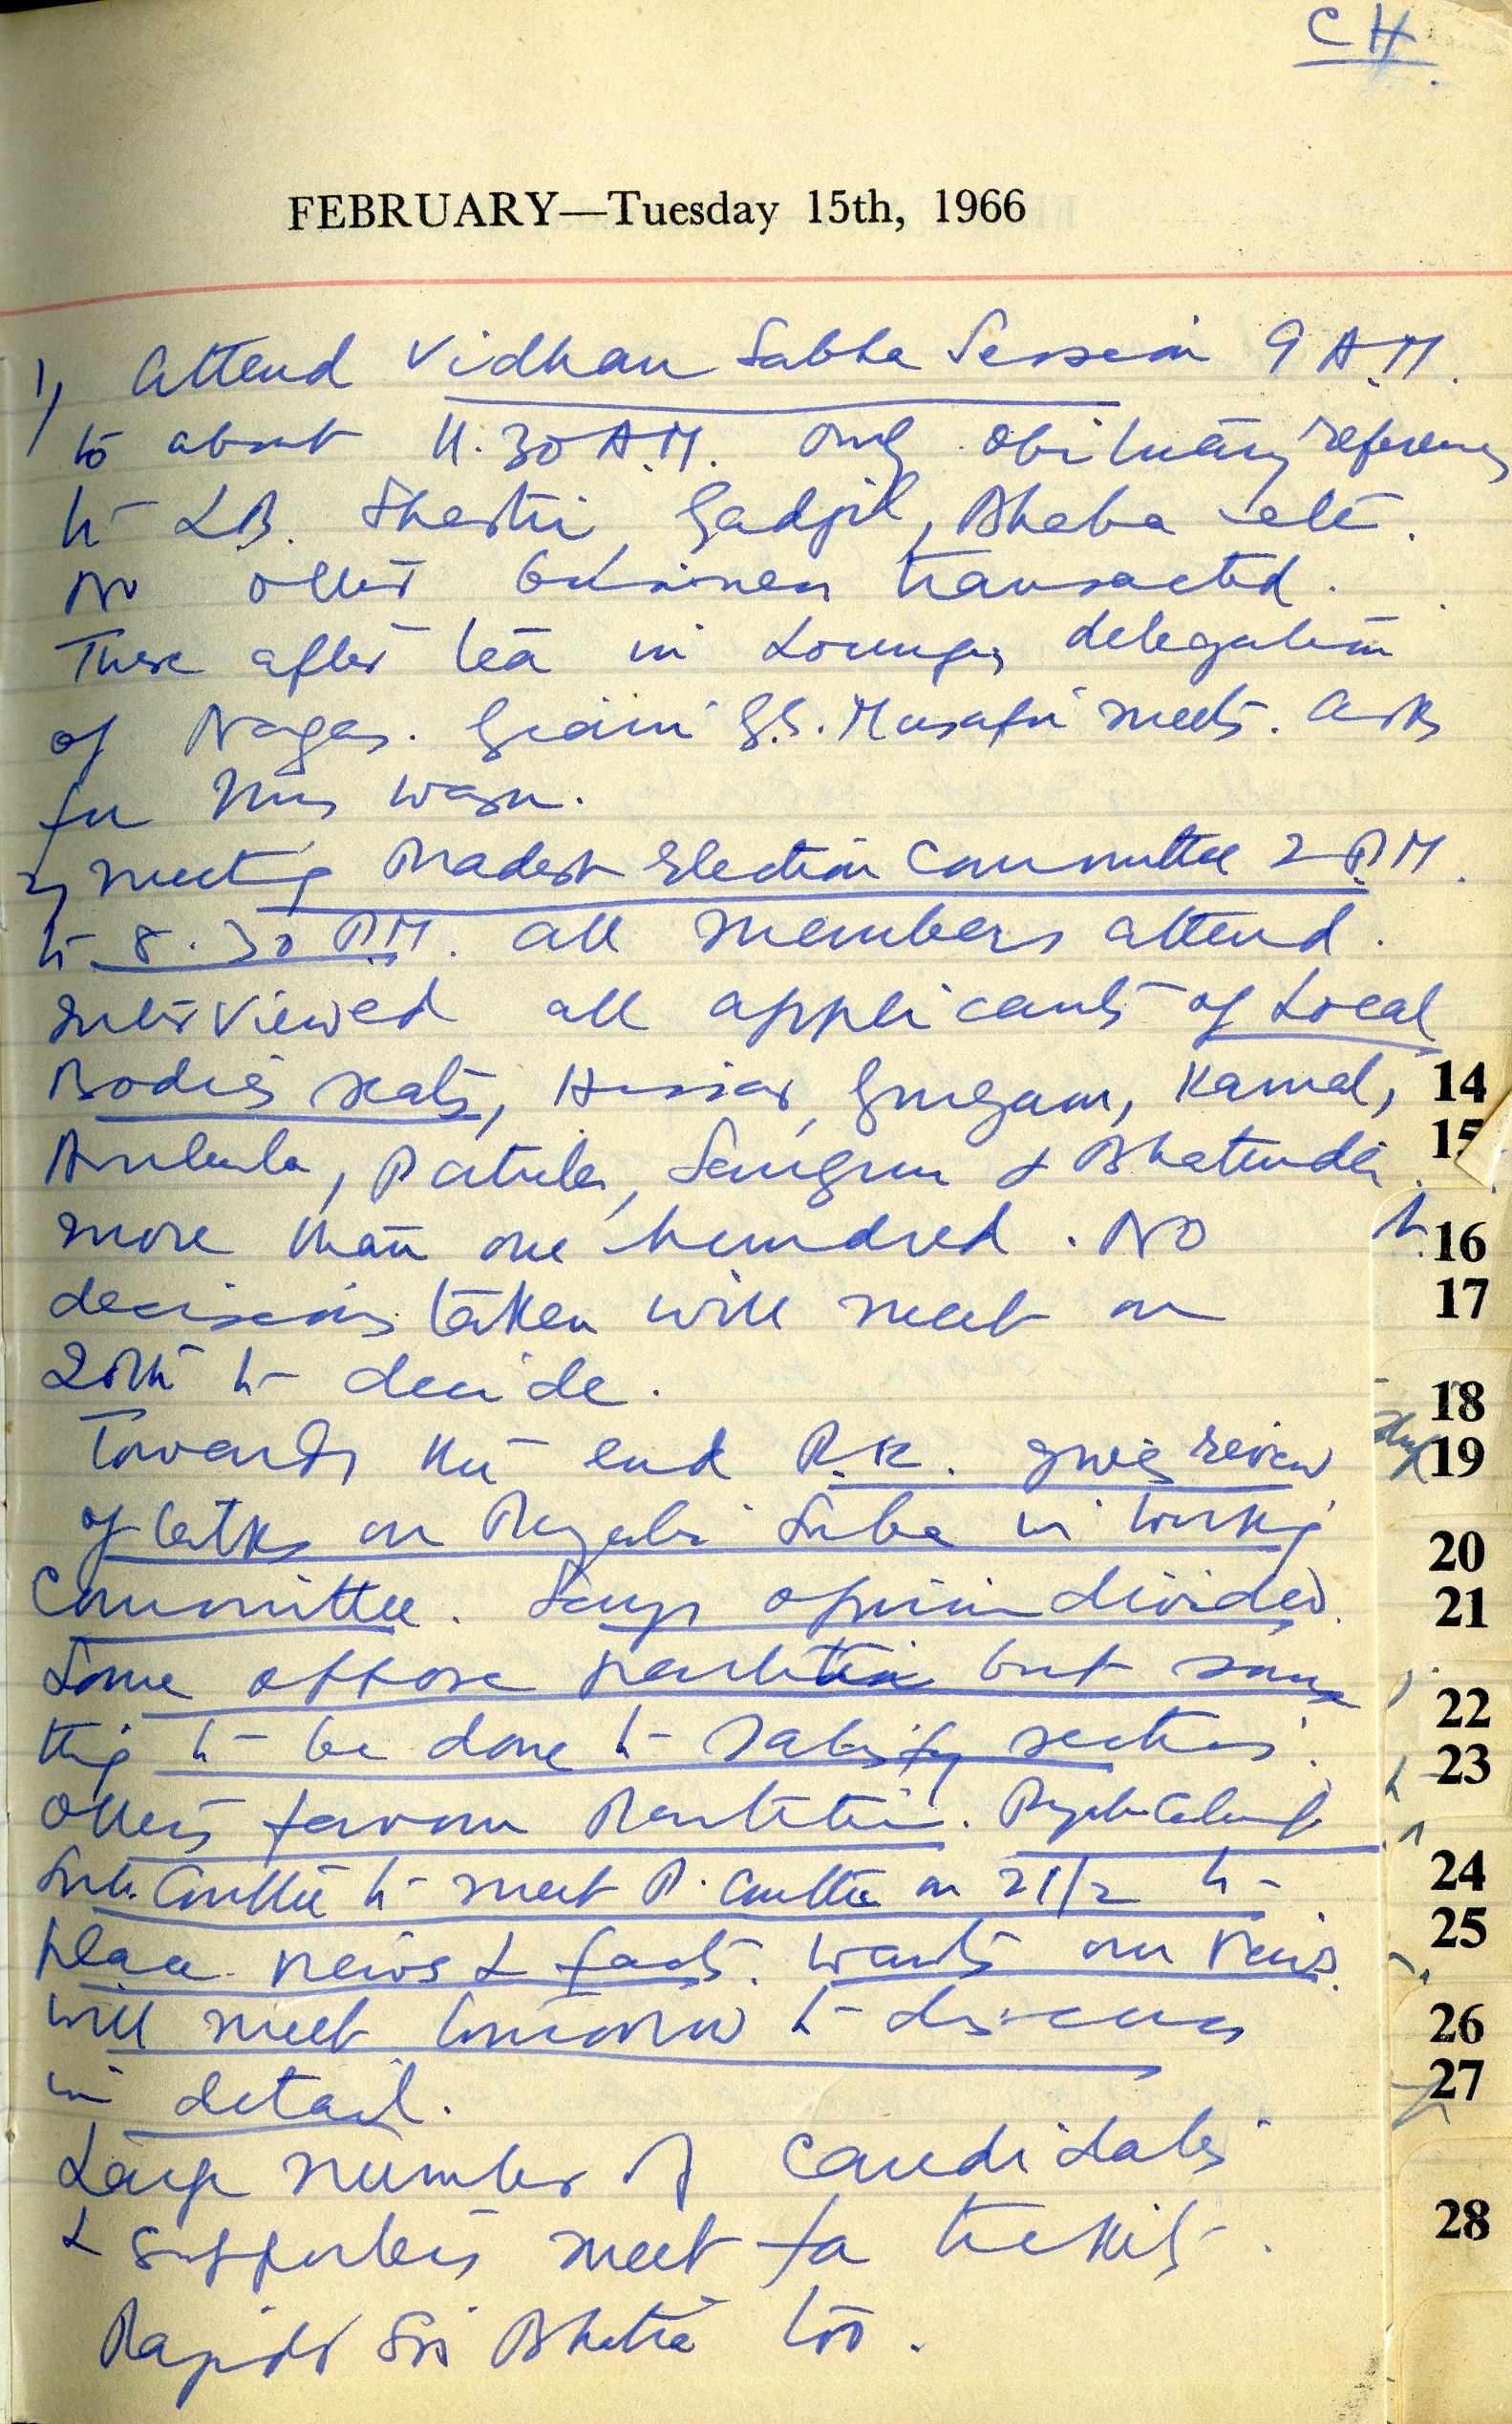 CH
FEBRUARY—Tuesday 15th, 1966
1) Attend Vidhan Sabha Session 9 A.M.
to about 11.30 A.M. only obituary references
to L.B. Shastri, Gadgil, Bhaba etc.
No other business transacted.
There after tea in Lounge, delegation
of Nagas. Giani G.S. Musafir meets. Asks
for
2) Meeting Pradesh Election Committee 2 P.M.
to 8.30 P.M. All members attend.
Interviewed all applicants of Local
Bodies seats, Hissar, Gurgaon, Karnal,
Ambala, Patiala, Sangrur & Bhatinda
more than one hundred. No
decisions taken will meet on
20th to decide.
Towards the end R.K. gives review
of talks on Punjabi Suba in Working
Committee. Says opinion divided.
Some oppose partition but some
thing to be done to satisfy section.
Others favour Partition. Punjab Cabinet
Sub. Cmttee to meet P. Cmttee on 21/2 to
place views & facts. Wants our views.
Will meet tomorrow to discuss
in detail.
Large number of candidates
& supporters meet for tickets.
Bhatia too.
14
15
16
17
18
19
20
21
22
23
24
25
26
27
28